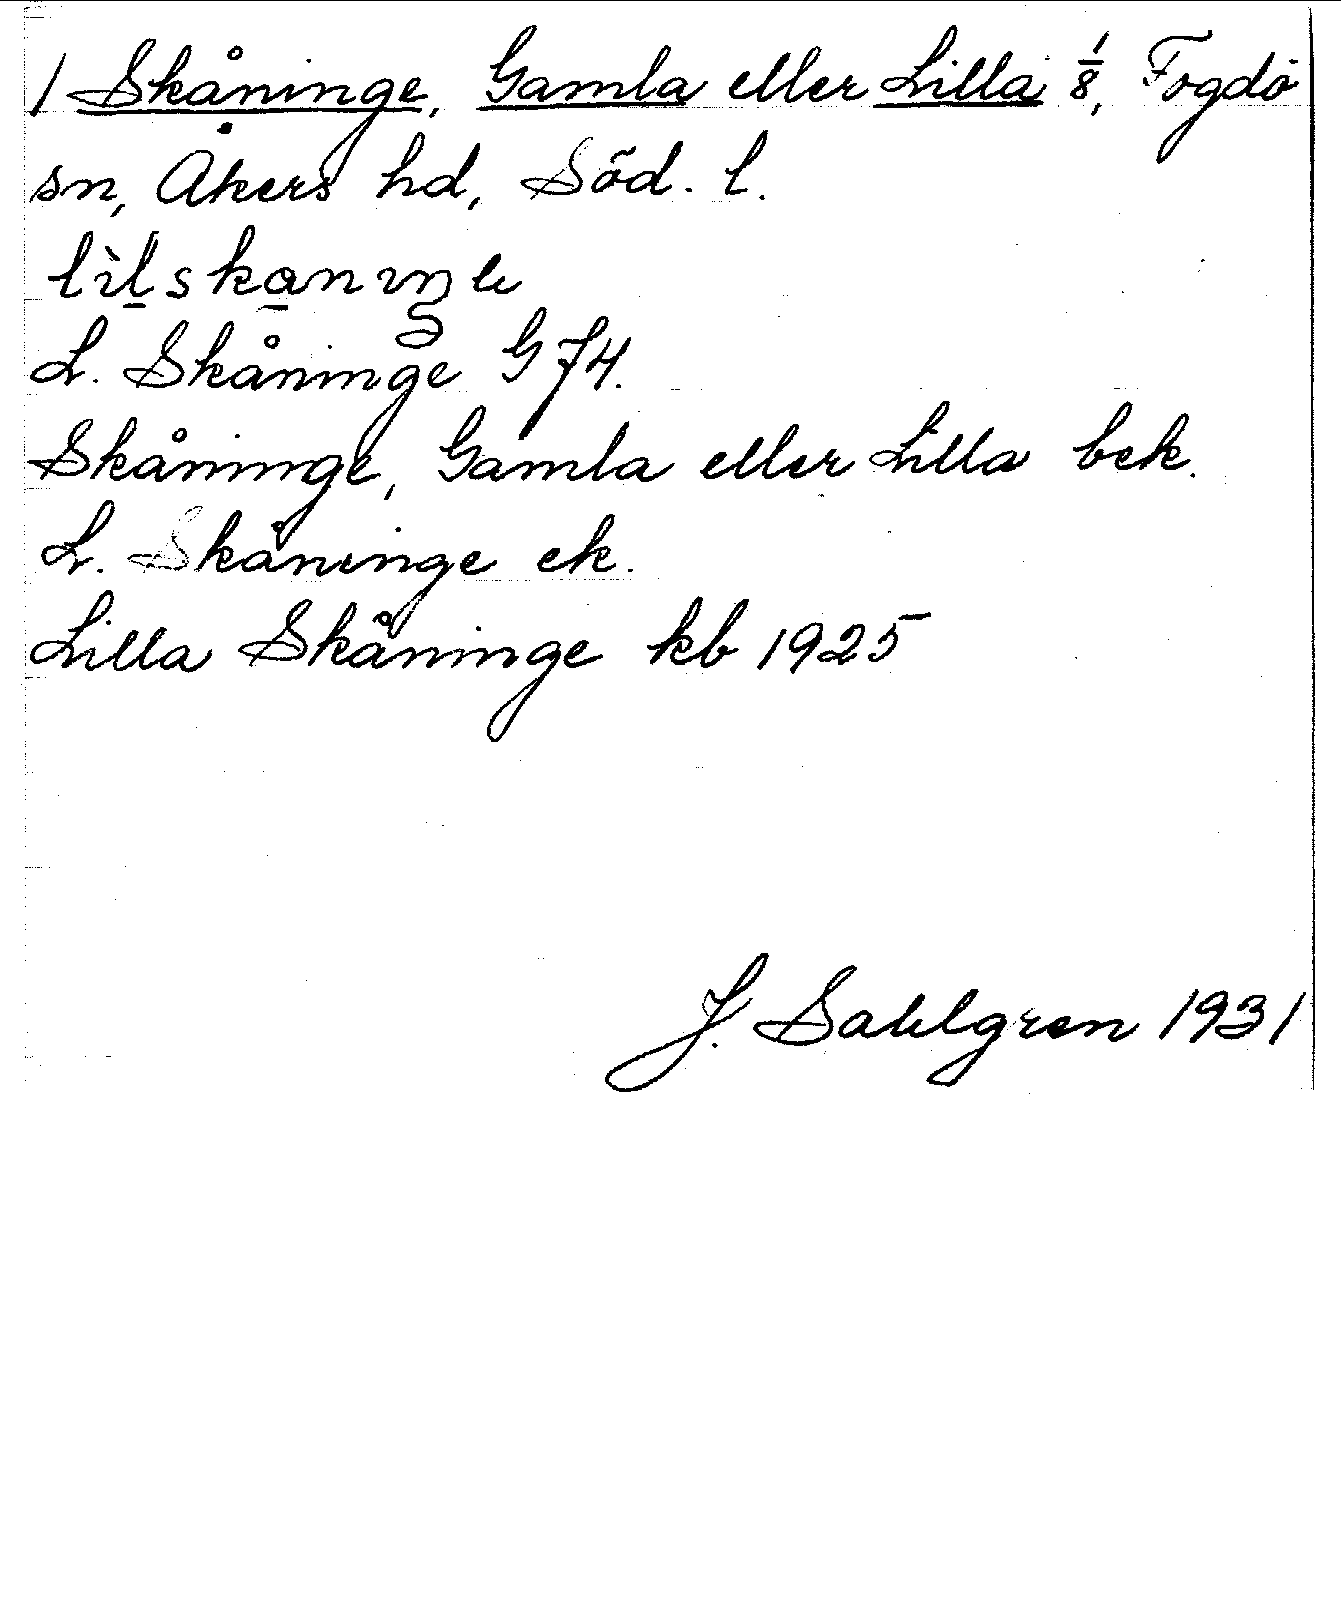 1 Skåninge, Gamla eller Lilla 1/8, Fogdö
sn, Åkers hd, Söd. l.
L. Skåninge G 74.
Skåninge, Gamla eller Lilla bek.
L. Skåninge ek.
Lilla Skåninge kb 1925
J. Sahlgren 1931